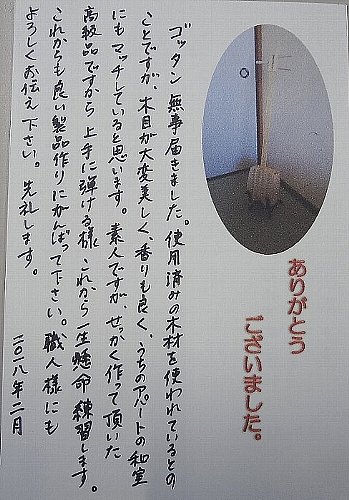 ありがとう
ございました。
ゴッタン無事届きました。使用済みの木材を使われているとの
ことですが、木目が大変美しく、香りも良く、うちのアパートの和室
にもマッチしていると思います。素人ですが、せっかく作って頂いた
高級品ですから上手に弾ける様、これから一生懸命練習します。
これからも良い製品作りにがんばって下さい。職人様にも
よろしくお伝え下さい。失礼します。
二〇一八年二月